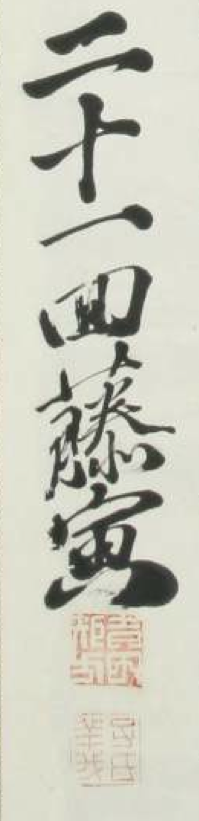 二十一回藤寅